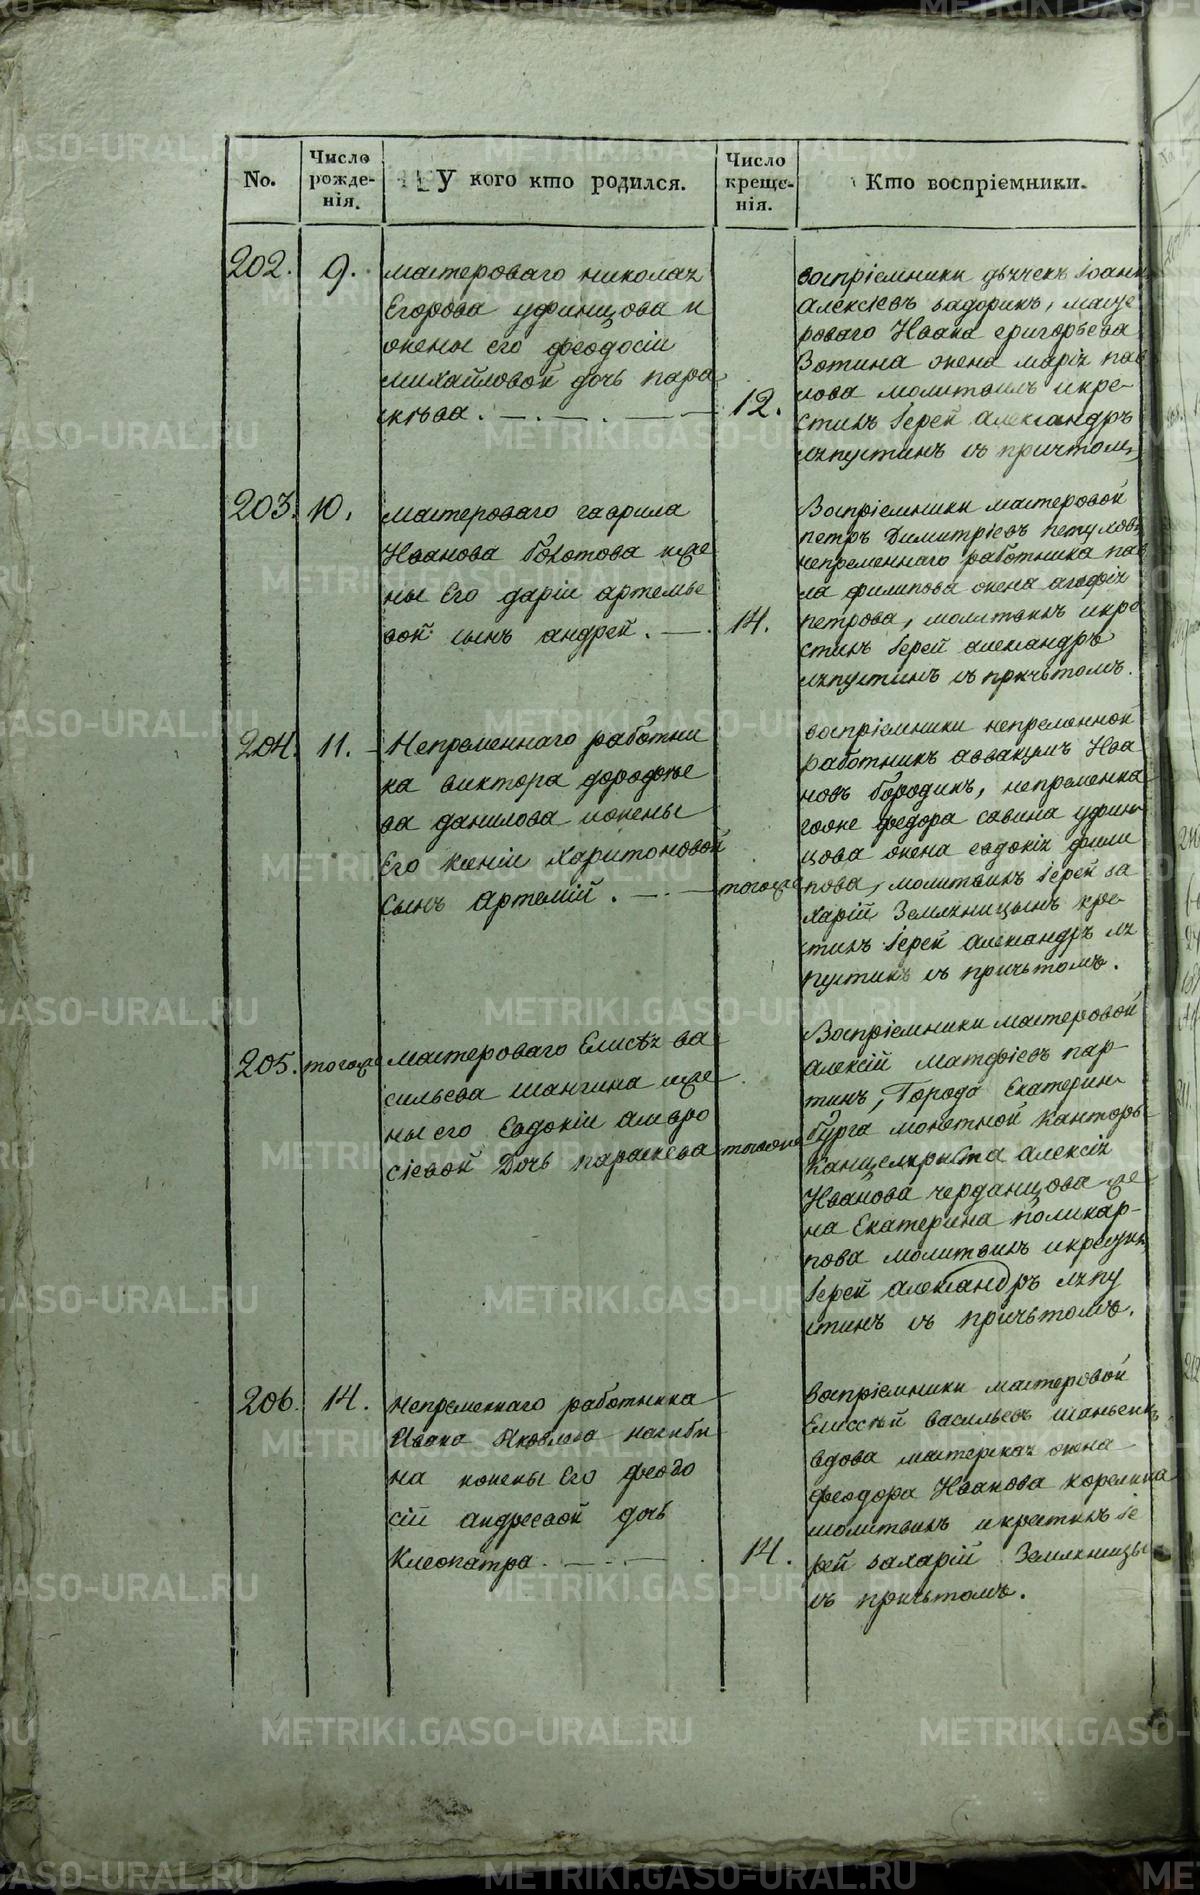 No.
Число рожде-нія.
У кого кто родился.
Число креще-нія.
Кто воспріемники.
202.
9.
мастероваго николая
Егорова уфинцова и
жены его феодосіи
михайловой дочь пара
скѣва.
12.
воспріемники дьячекъ іоаннъ
Алексіевъ задоринъ, масте
роваго Ивана григорьева
Зотина жена марія пав
лова молитвилъ и кре-
стилъ іерей александръ
ляпустинъ съ причтомъ
203.
10.
мастероваго гаврила
Иванова болотова и же
ны Его даріи артемье
вой сынъ андрей.
14.
Воспріемники мастеровой
петръ Димитріевъ петуховъ
непременнаго работника пав
ла филипова жена агафія
петрова, молитвилъ и кре
стилъ іерей александръ
ляпустинъ съ причьтомъ.
204.
11.
Непременнаго работни
ка виктора дорофѣе
ва данилова и жены
Его ксеніи Харитоновой
сынъ артемій.
тогоже
воспріемники непременной
работникъ аввакумъ Ива
новъ бородинъ, непременна
гоже федора савина уфин
цова жена евдокія фили
пова, молитвилъ іерей за
харій Земляницынъ кре-
тилъ іерей александръ ля
пустинъ съ причьтомъ.
205.
тогоже
мастероваго Елисѣя ва
сильева шангина и же
ны его Евдокіи амвро
сіевой Дочь параскева
тогоже
Воспріемники мастеровой
алексій матфіевъ пар
тинъ, Города Екатерин-
бурга монетной Канторы
Канцеляриста алексія
Иванова черданцова же
на Екатерина поликар-
пова молитвилъ и крестилъ
іерей александръ ляпу
стинъ съ причьтомъ.
206.
14.
непременнаго работника
Ивана Яковлева нагиби
на и жены Его феодо
сіи андреевой дочь
Клеопатра.
14.
воспріемники мастеровой
Елиссѣй васильевъ
вдова мастерская жена
феодора Иванова корелина
молитвилъ и крестилъ іе
рей захарій Земляницы
съ причьтомъ.
METRIKI.GASO-URAL.RU